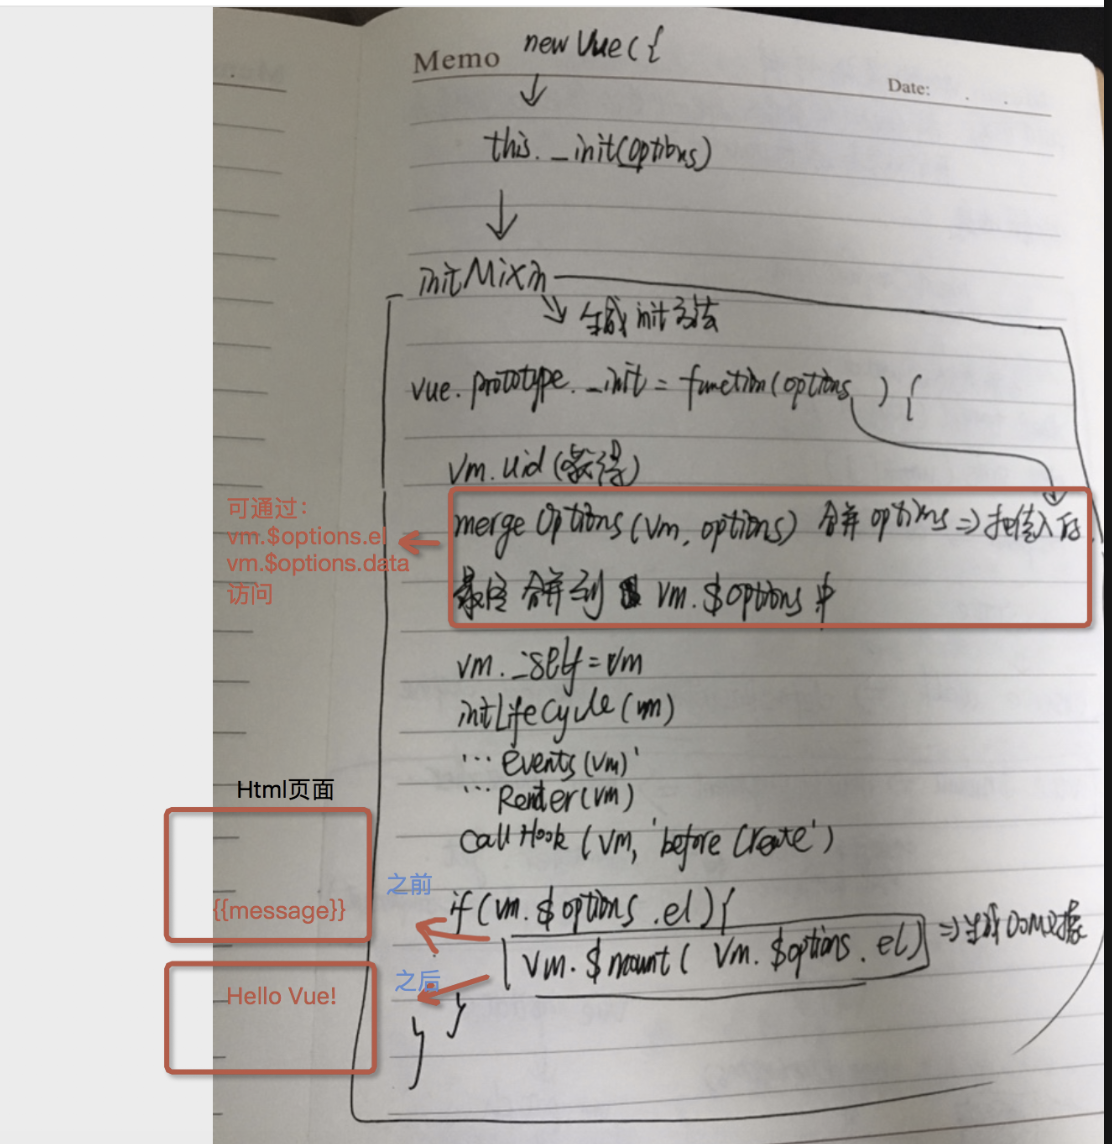 Memo new Vue({
Date:
this._init(options)
initMixin
生成init方法
vue.prototype._init = function(options ) {
vm.uid (获得)
可通过：
vm.$options.el
vm.$options.data
访问
mergeOptions(vm, options) 合并 options => 把传入的
最终合并到 vm.$options 中
vm._self = vm
initLifecycle(vm)
... Events(vm)
... Render(vm)
callHook (vm, 'beforeCreate')
Html页面
{{message}}
之前
if(vm.$options.el){
vm.$mount( vm.$options.el) => 生成DOM对象
之后
Hello Vue!
}
}